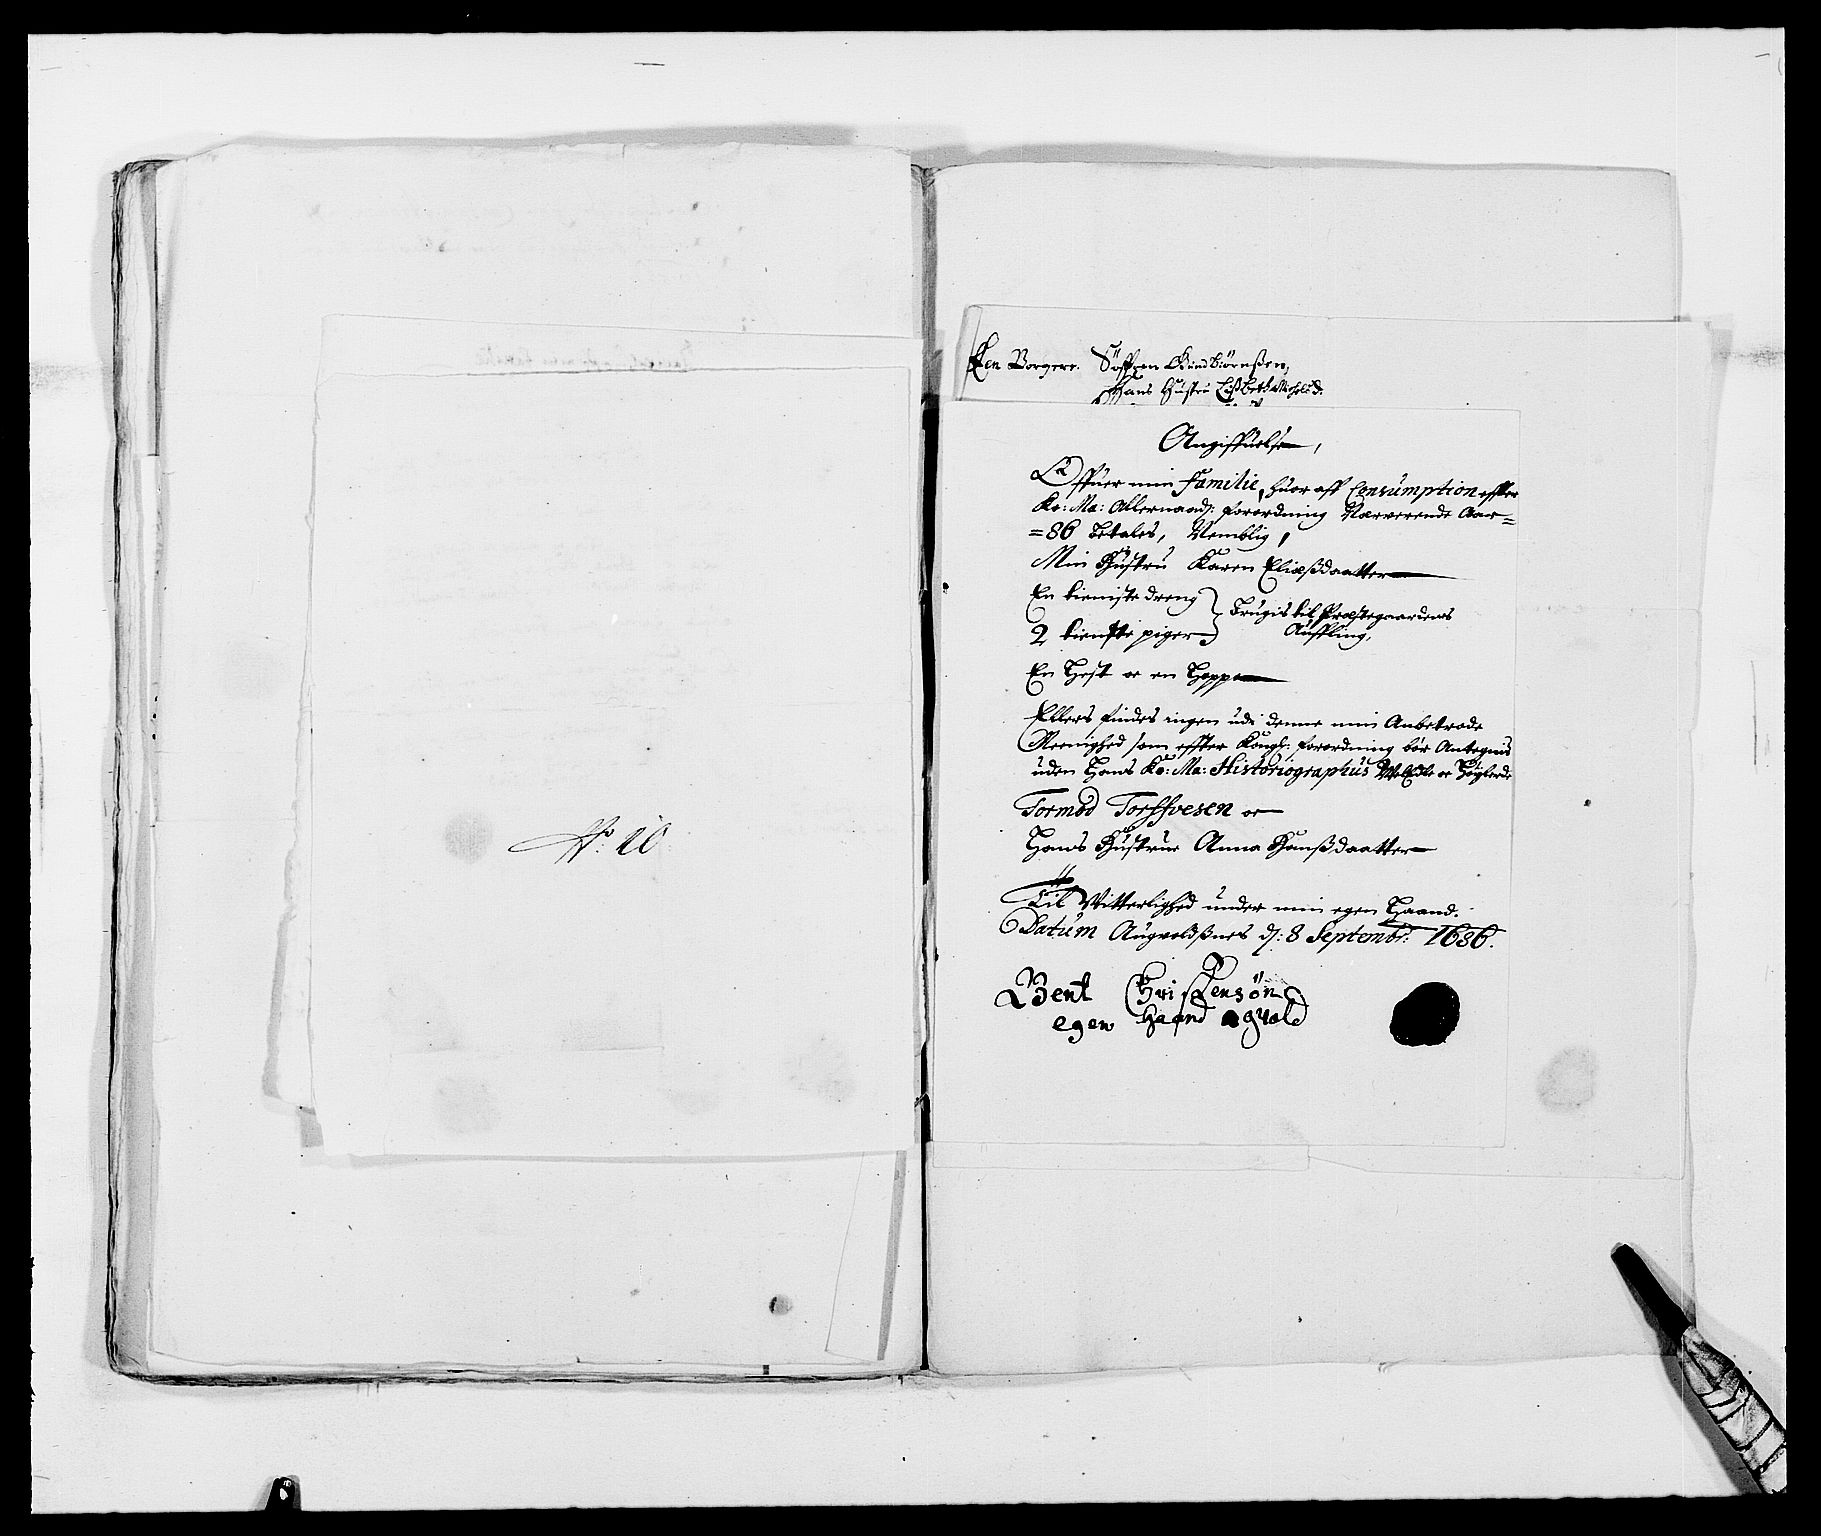 No: 10
Een Borgere. Søffren Gundbiörnßen,
Hans Hüstru Lißbeth Michelsd:
Angiffuelse,
Offuer min Familie, huor aff Consumption effter
Ko: Ma: Allernaads: forordning Nærverende Aar=
=86 Betales, Nemblig,
Min Hüstru Karen Eliæßdaatter
En tieniste dreng
2 tienste piger
Brugis til Præstegaardens
Auffling,
En Hest oc en Hoppe
Ellers findes ingen udi denne min Anbetrode
Meenighed som effter Kongl: forordning bør Antegnis
uden Hans Ko: Ma: Historiographus Welædle oc Høylerde
Tormod Torffvesen oc
Hans Hüstrue Anna Hanßdaatter
Til Vitterlighed under min egen Haand.
Datum Augvoldßnes d: 8 Septembr: 1686.
Bent Christensøn
egen Haand